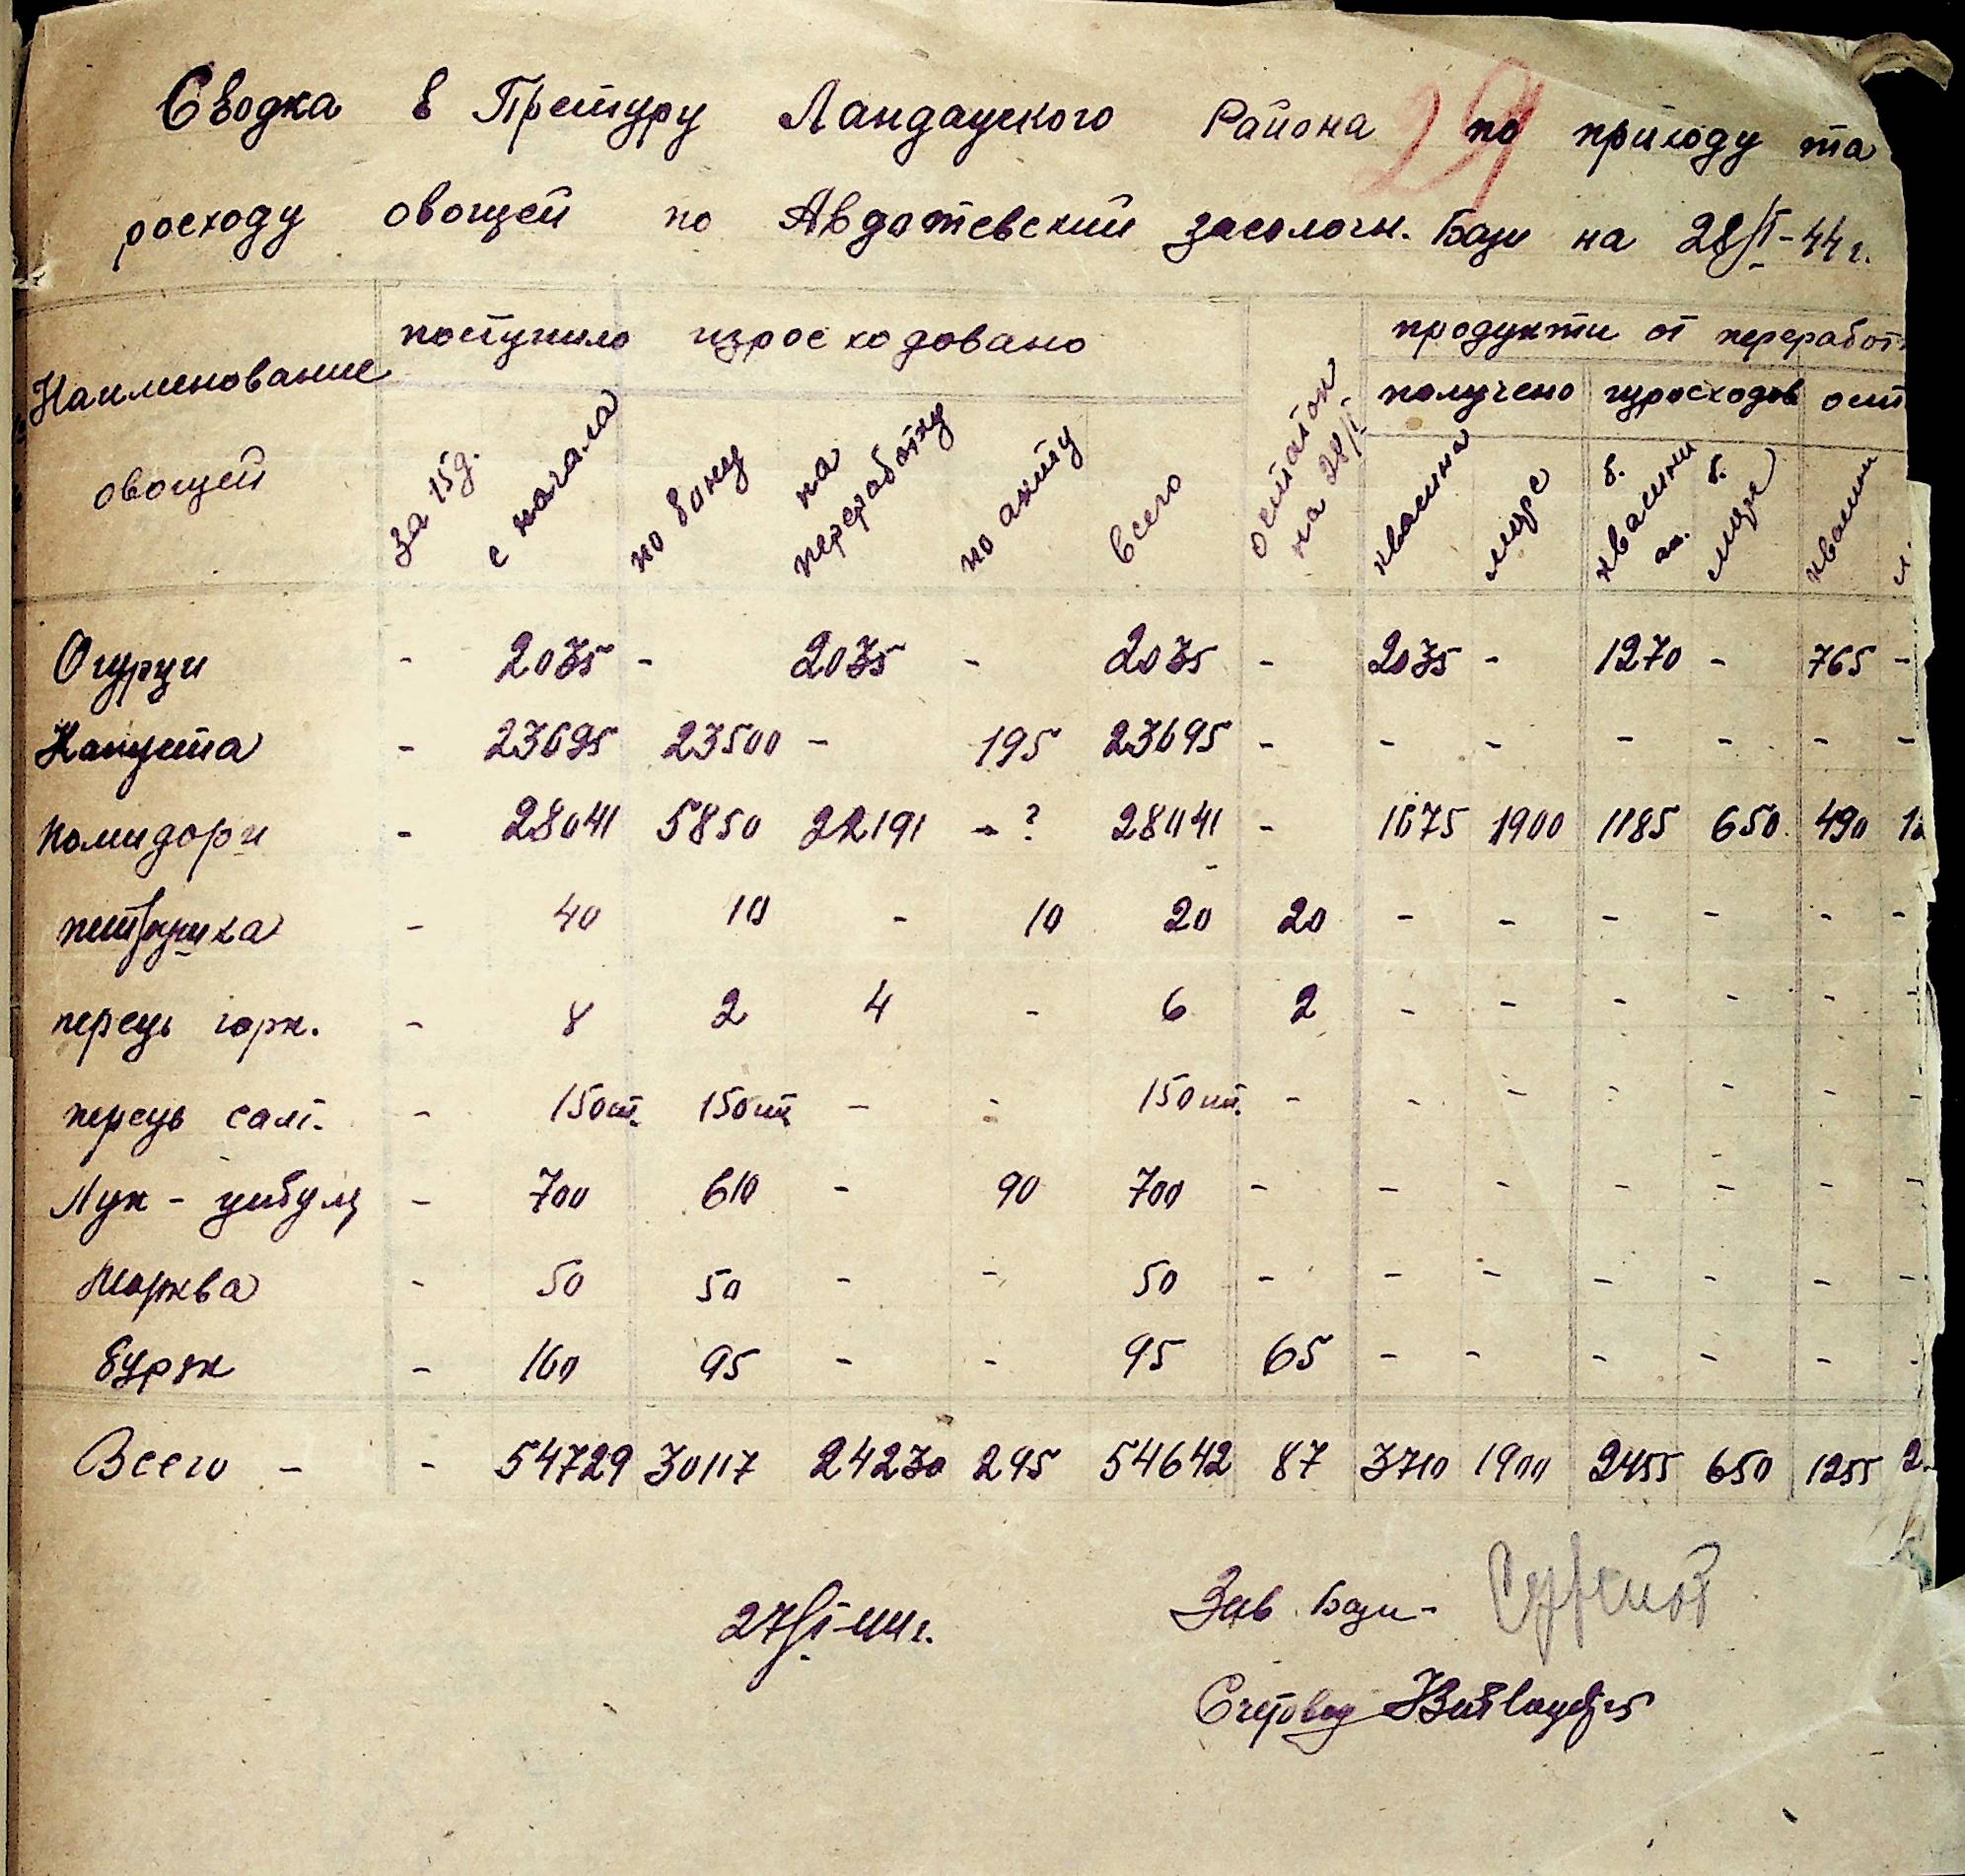 29
Сводка в Претуру Ландауского Района по приходу та
росходу овощей по Авдотевский засолочн. Бази на 28/I-44 г.
Наименование овощей
поступило изросходовано
остаток на 28/I
продукти от переработ
получено изросходов ост
за 15 д. с начала по бону на переработку по акту всего квашина мнре б. квашини б. мнре квашин
Огурци - 2035 - 2035 - 2035 - 2035 - 1270 - 765 -
Капуста - 23695 23500 - 195 23695 - - - - - - -
Помидори - 28041 5850 22191 - ? 28041 - 1675 1900 1185 650 490 1
петрушка - 40 10 - 10 20 20 - - - - - -
перець горк. - 8 2 4 - 6 2 - - - - - -
перець салт. - 150 шт. 150 шт. - - 150 шт. - - - - - - -
Лук - цибуля - 700 610 - 90 700 - - - - - - -
Морква - 50 50 - - 50 - - - - - - -
Буряк - 160 95 - - 95 65 - - - - - -
Всего - - 54729 30117 24230 295 54642 87 3710 1900 2455 650 1255 2
27/I-44 г.
Зав. Бази -
Счетовод